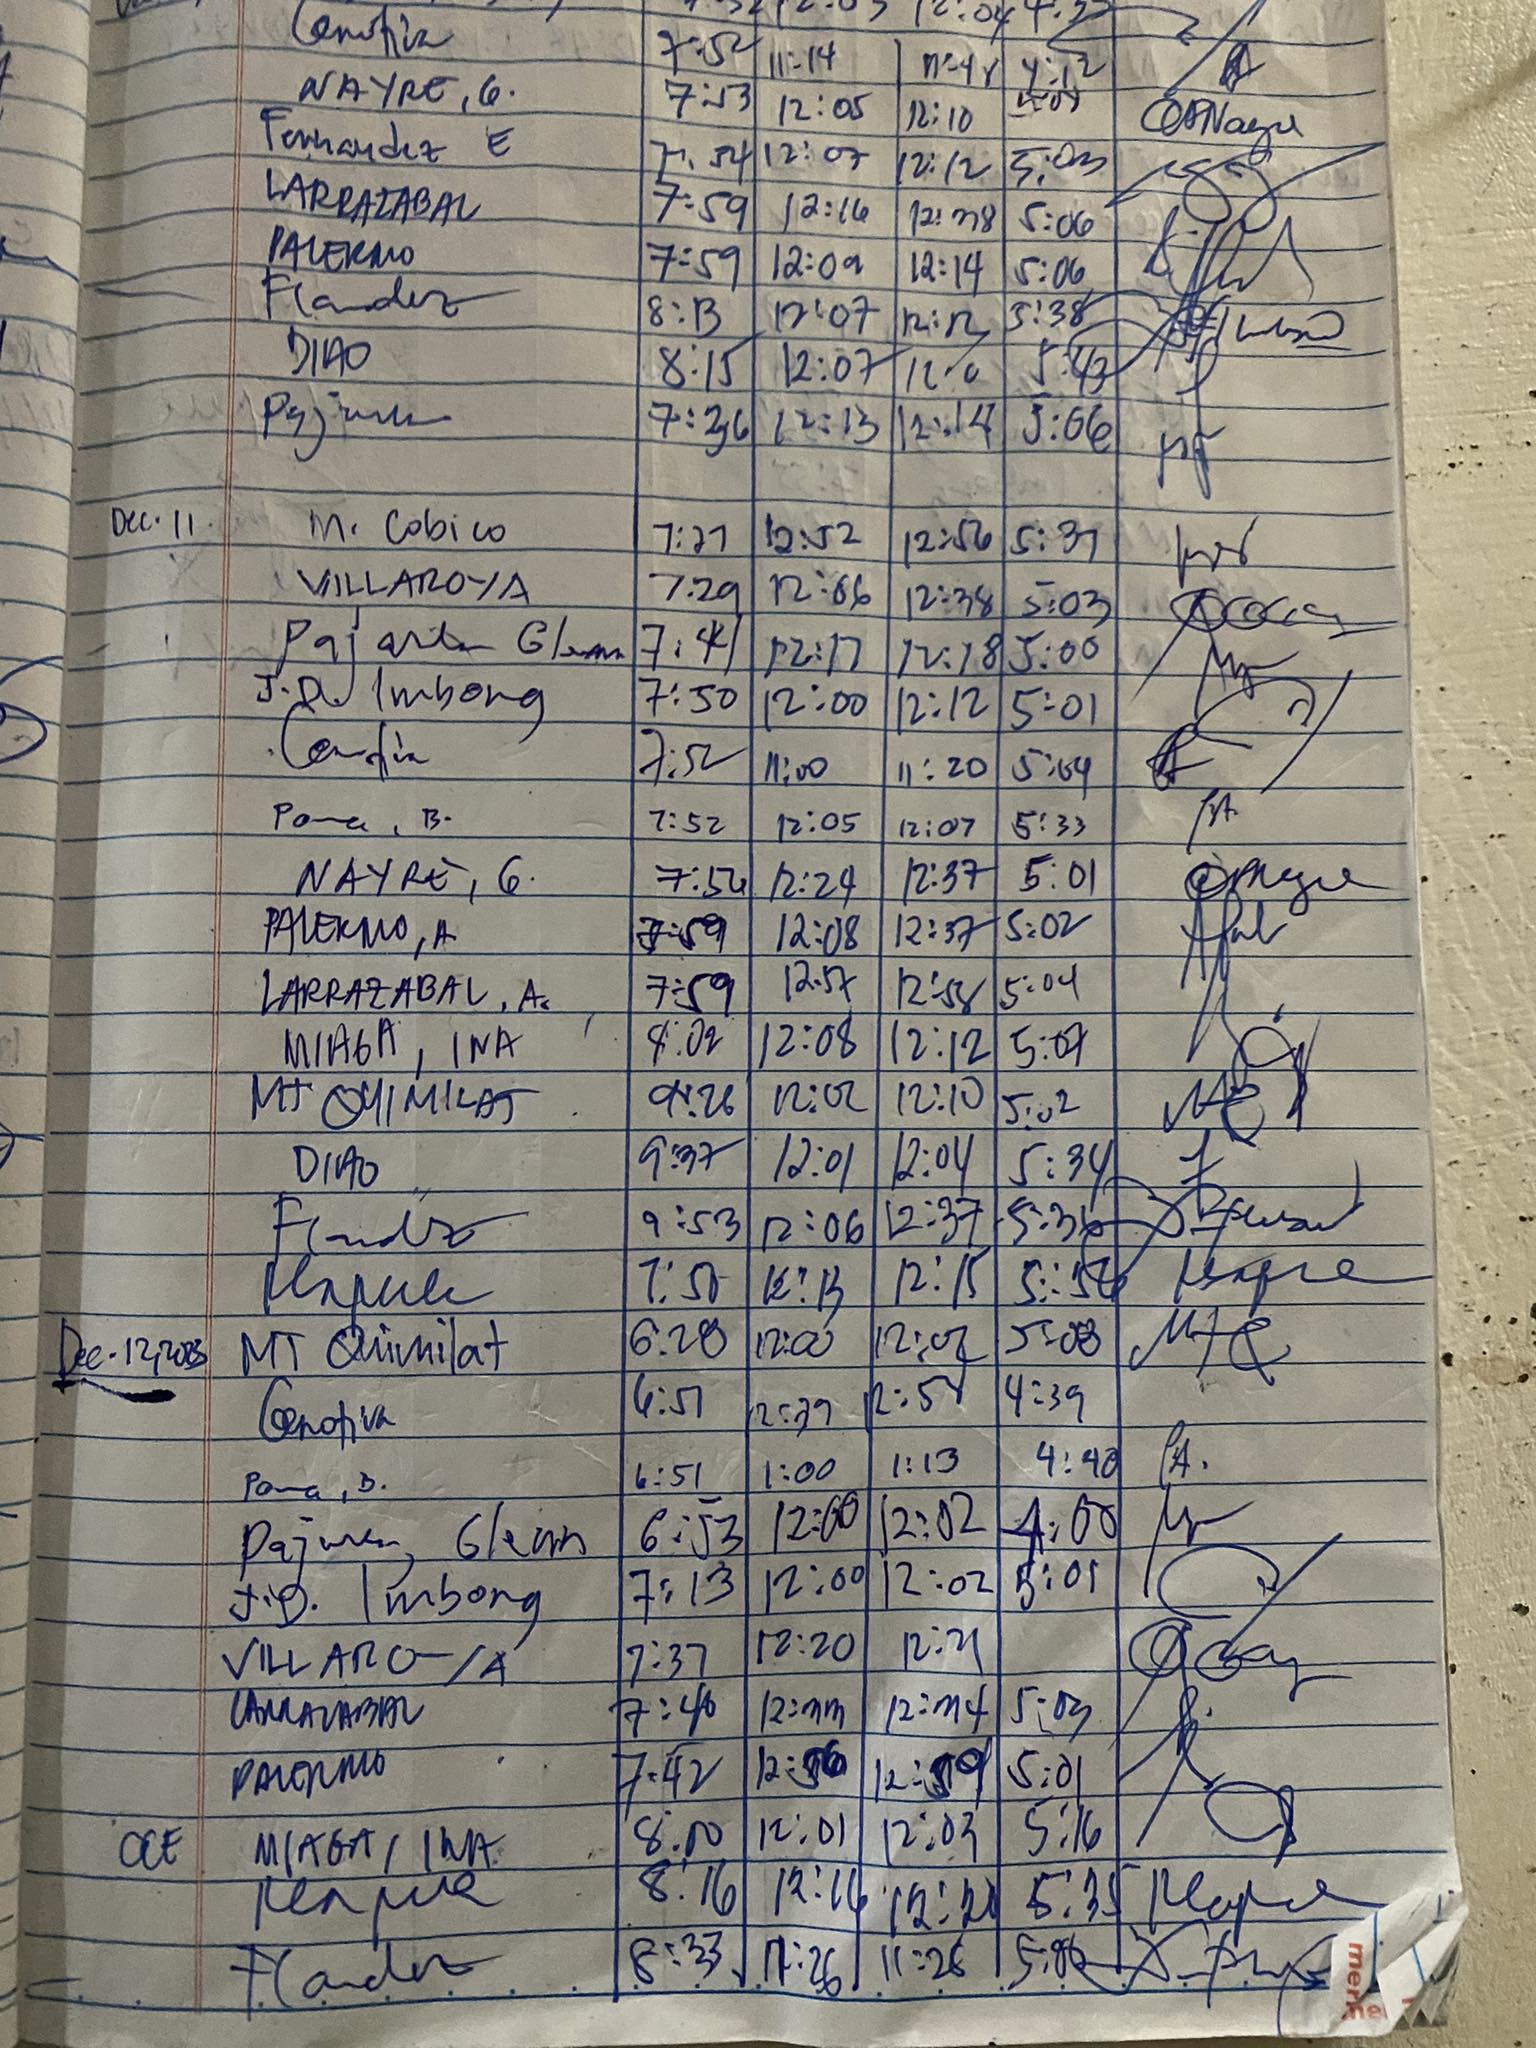 7:52 12:03 12:04 4:33
Cenofiva 7:52 11:14
NAYRE, G. 7:53 12:05 12:10
Fernandez E 7:54 12:07 12:12 5:03
LARRAZABAL 7:59 12:16 12:38 5:06
PALERMO 7:59 12:09 12:14 5:06
Flandez 8:13 12:07 12:12 5:38
DIAO 8:15 12:07 5:43
7:26 12:13 12:14 5:06
Dec. 11 M. Cobico 7:27 12:52 12:56 5:37
VILLAROYA 7:29 12:06 12:38 5:03
Glenn 7:41 12:17 12:18 5:00
J.D. Imbong 7:50 12:00 12:12 5:01
Cenofiva 7:52 11:00 11:20 5:04
Pama, B. 7:52 12:05 12:07 5:33
NAYRE, G. 7:56 12:24 12:37 5:01
PALERMO, A 7:59 12:08 12:37 5:02
LARRAZABAL, A. 7:59 12:57 12:58 5:04
MIAGA, INA 8:02 12:08 12:12 5:07
MT QUIMILAT 9:26 12:02 12:10 5:02
DIAO 9:37 12:01 12:04 5:34
Flandez 9:53 12:06 12:37
12:13 12:15
Dec. 12, 2023 MT Quimilat 6:28 12:00 12:02 5:03
Cenofiva 6:51 12:39 4:39
Pama, B. 6:51 1:00 1:13 4:40 PA.
Glenn 6:53 12:00 12:02
J.D. Imbong 7:13 12:00 12:02 5:01
VILLAROYA 7:37 12:20 12:21
LARRAZABAL 7:40 12:33 12:34 5:03
PALERMO 7:42 12:56 12:59 5:01
OCE MIAGA, INA 8:00 12:01 12:03 5:16
8:16 12:16 5:35
Flandez 8:33 11:26 11:26